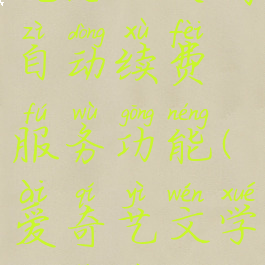 zì dòng xù fèi
自动续费
fú wù gōng néng
服务功能(
ài qí yì wén xué
爱奇艺文学